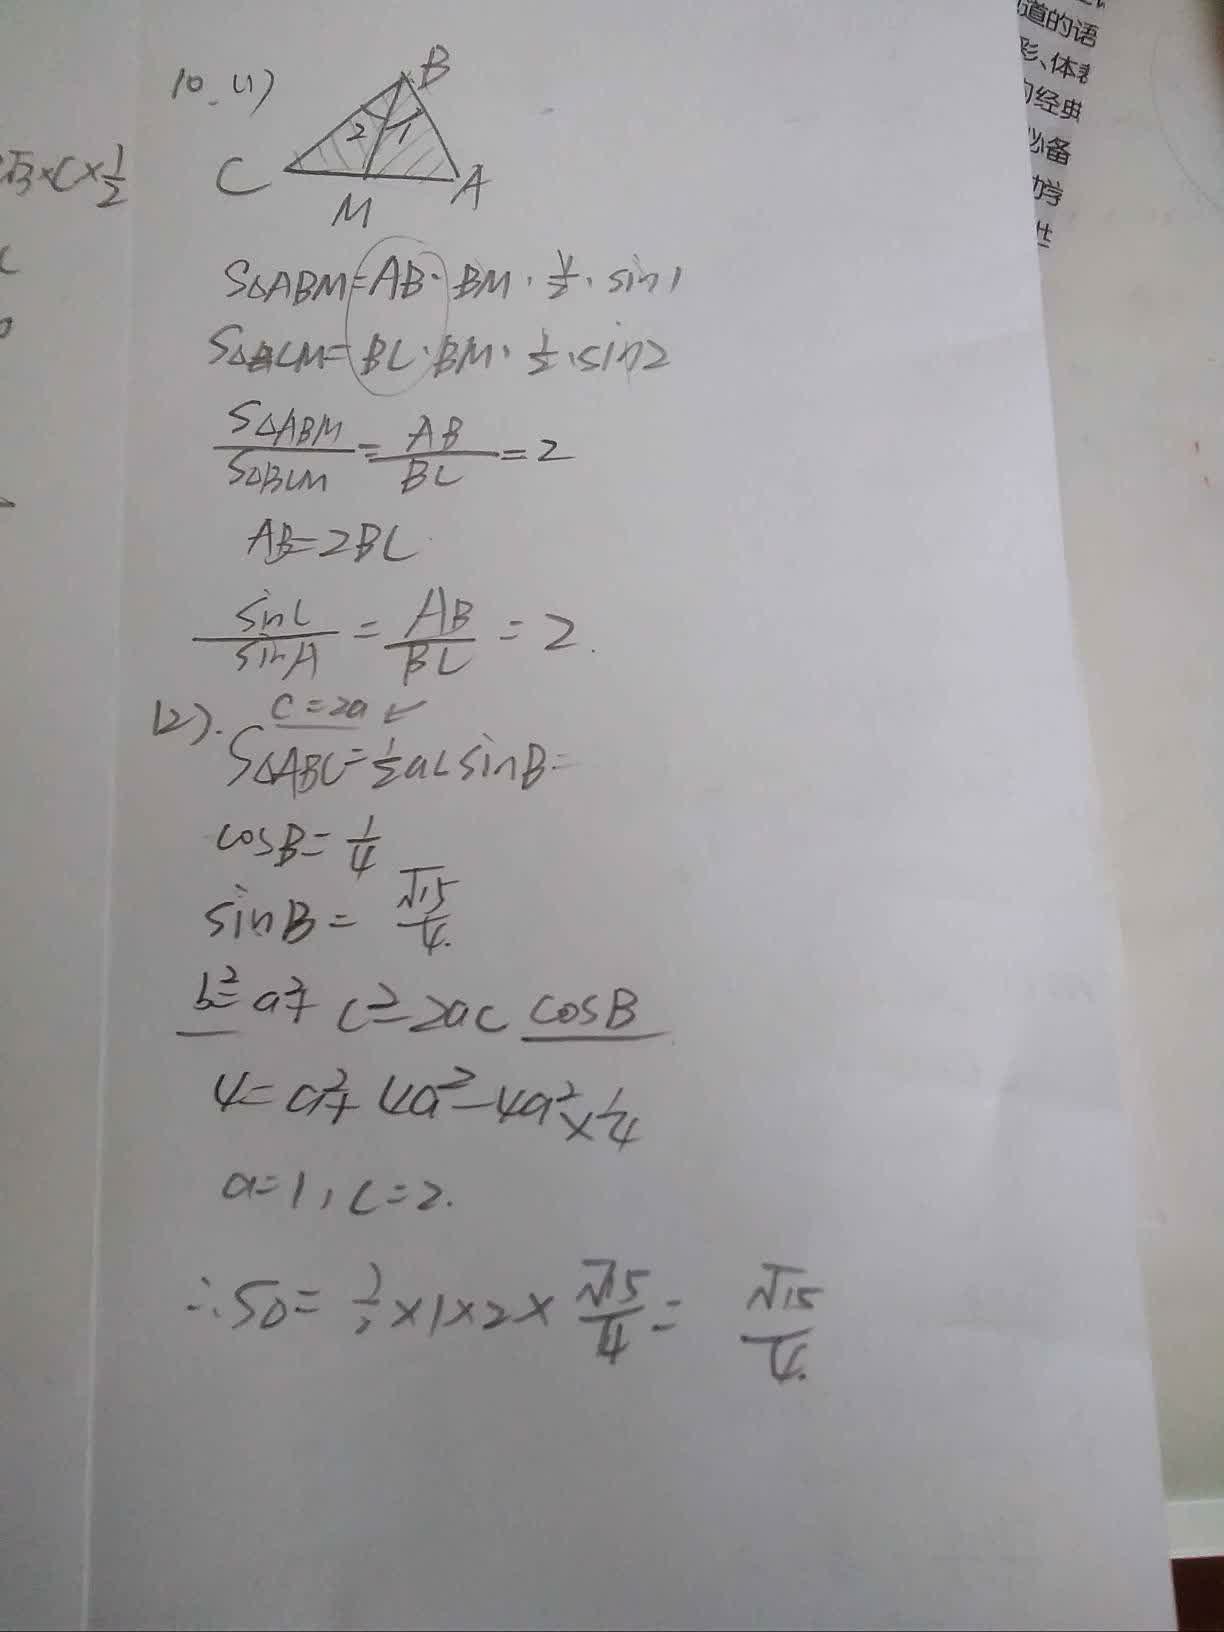 道的语
彩、体
的经典
必备
助学
√3×C×1/2
10.(1)
B
2 1
C
A
M
S△ABM=AB·BM·1/2·sin1
S△BCM=BC·BM·1/2·sin2
S△ABM/S△BCM=AB/BC=2
AB=2BC
sinC/sinA=AB/BC=2.
(2). c=2a ✓
S△ABC=1/2acsinB=
cosB=1/4
sinB=√15/4.
b²=a²+c²-2ac cosB
4=a²+4a²-4a²×1/4
a=1,c=2.
∴S△=1/2×1×2×√15/4=√15/4.